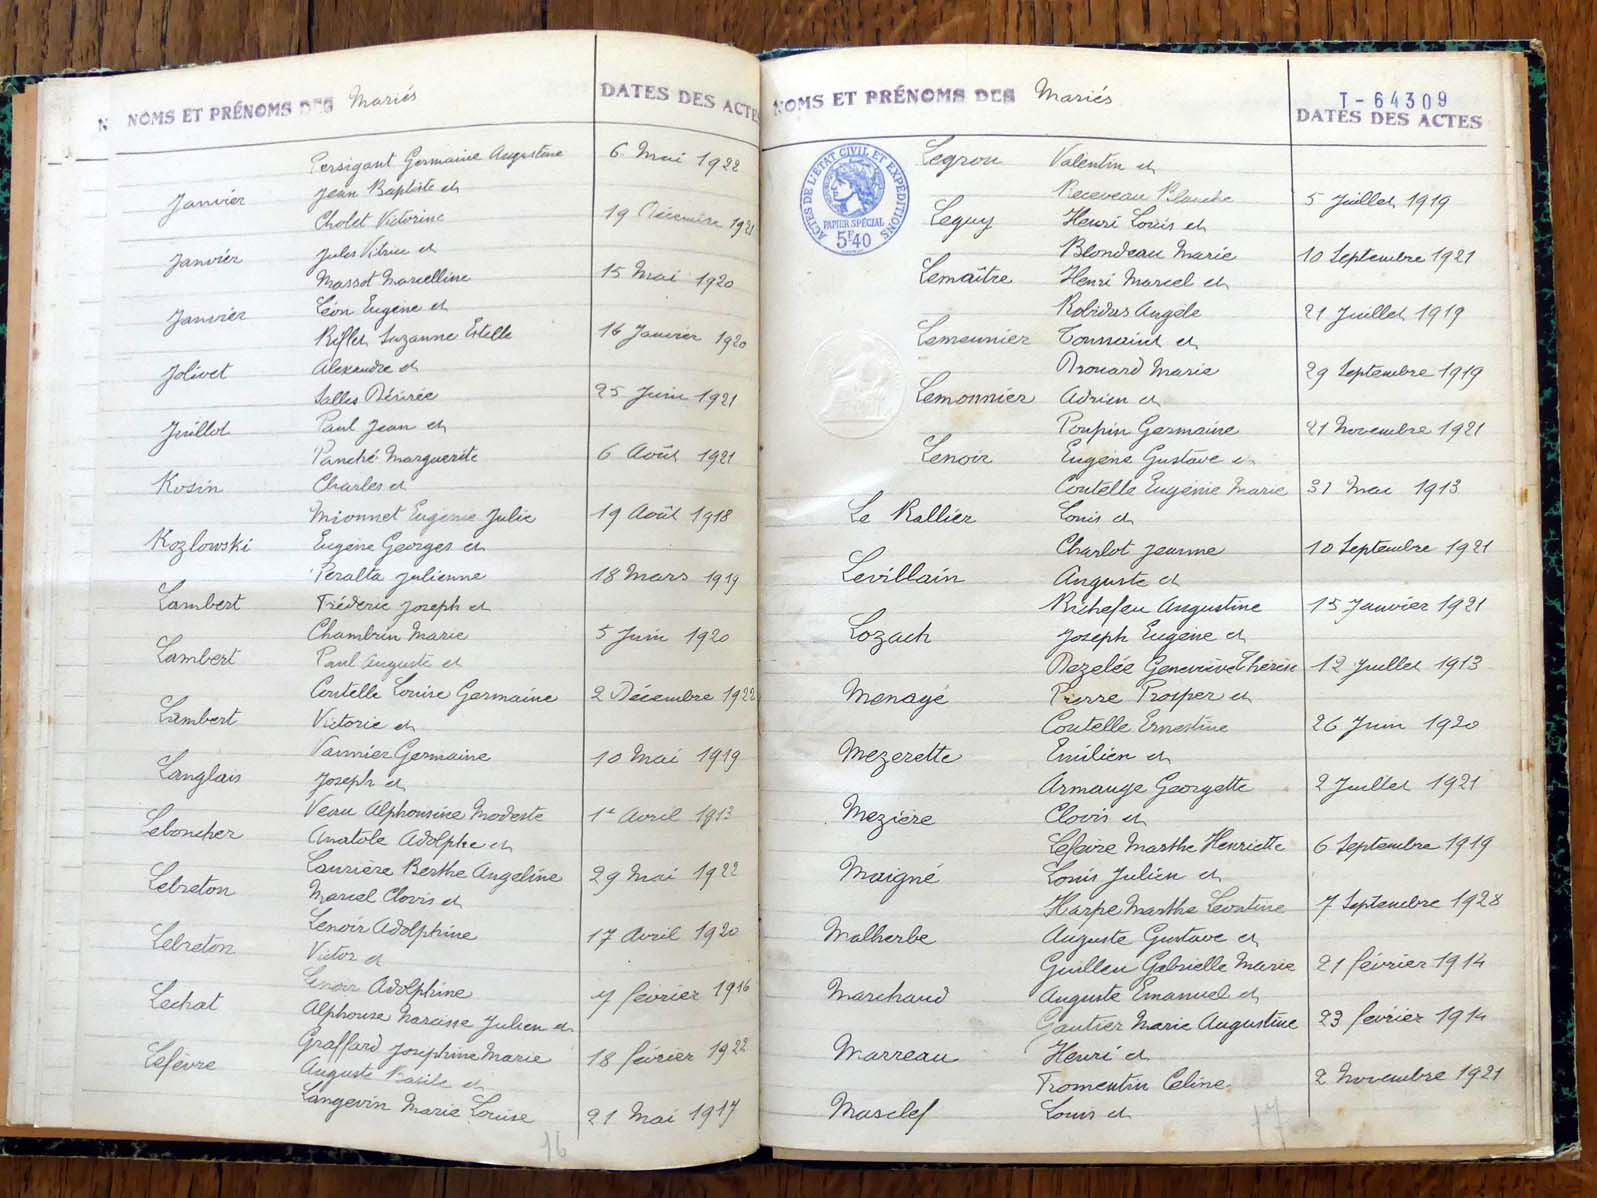 N NOMS ET PRÉNOMS DES Mariés DATES DES ACTES
Persigant Germaine Augustine 6 Mai 1922
Janvier Jean Baptiste et
Cholet Victorine 19 Décembre 1921
Janvier Jules et
Massot Marcelline 15 Mai 1920
Janvier Léon Eugène et
Rifflet Suzanne Estelle 16 Janvier 1920
Jolivet Alexandre et
Salles Désirée 25 Juin 1921
Juillot Paul Jean et
Panché Marguerite 6 Août 1921
Kosin Charles et
Mionnet Eugénie Julie 19 Août 1918
Kozlowski Eugène Georges et
Peralta Julienne 18 Mars 1919
Lambert Fréderic Joseph et
Chambrin Marie 5 Juin 1920
Lambert Paul Auguste et
Coutelle Louise Germaine 2 Décembre 1922
Lambert Victorie et
Vannier Germaine 10 Mai 1919
Langlais Joseph et
Veau Alphonsine Modeste 1er Avril 1913
Leboucher Anatole Adolphe et
Laurière Berthe Angeline 29 Mai 1922
Lebreton Marcel Clovis et
Lenoir Adolphine 17 Avril 1920
Lebreton Victor et
Lenoir Adolphine 7 février 1916
Lechat Alphonse Narcisse Julien et
Graffard Josephine Marie 18 février 1922
Lefèvre Auguste Basile et
Langevin Marie Louise 21 Mai 1917
16
NOMS ET PRÉNOMS DES Mariés T-64309
DATES DES ACTES
ACTES DE L'ÉTAT CIVIL ET EXPÉDITIONS
PAPIER SPÉCIAL
5F40
Legrou Valentin et
Receveau Blanche 5 Juillet 1919
Leguy Henri Louis et
Blondeau Marie 10 Septembre 1921
Lemaître Henri Marcel et
Robidas Angèle 21 Juillet 1919
Lemeunier Toussaint et
Drouard Marie 29 Septembre 1919
Lemonnier Adrien et
Poupin Germaine 21 Novembre 1921
Lenoir Eugène Gustave et
Coutelle Eugénie Marie 31 Mai 1913
Le Rallier Louis et
Charlot Jeanne 10 Septembre 1921
Levillain Auguste et
Richefeu Augustine 15 Janvier 1921
Lozach Joseph Eugène et
Dezelée Geneviève Thérèse 12 Juillet 1913
Menagé Pierre Prosper et
Coutelle Ernestine 26 Juin 1920
Mezerette Emilien et
Armange Georgette 2 Juillet 1921
Mezière Clovis et
Lefèvre Marthe Henriette 6 Septembre 1919
Maigné Louis Julien et
Harpe Marthe Léontine 7 Septembre 1928
Malherbe Auguste Gustave et
Guilleu Gabrielle Marie 21 février 1914
Marchand Auguste Emanuel et
Gautier Marie Augustine 23 février 1914
Marreau Henri et
Fromentin Celine 2 Novembre 1921
Masclef Louis et
17